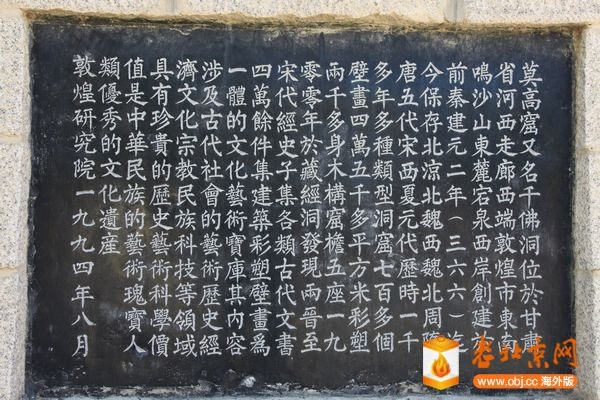 莫高窟又名千佛洞位於甘肅
省河西走廊西端敦煌市東南
鳴沙山東麓宕泉西岸創建於
前秦建元二年(三六六)迄
今保存北涼北魏西魏北周隋
唐五代宋西夏元代歷時一千
多年多種類型洞窟七百多個
壁畫四萬五千多平方米彩塑
兩千多身木構窟檐五座一九
零零年於藏經洞發現兩晉至
宋代經史子集各類古代文書
四萬餘件集建築彩塑壁畫爲
一體的文化藝術寶庫其内容
涉及古代社會的藝術歷史經
濟文化宗教民族科技等領域
具有珍貴的歷史藝術科學價
值是中華民族的藝術瑰寶人
類優秀的文化遺産
敦煌研究院一九九四年八月
老北京网
www.obj.cc 海外版